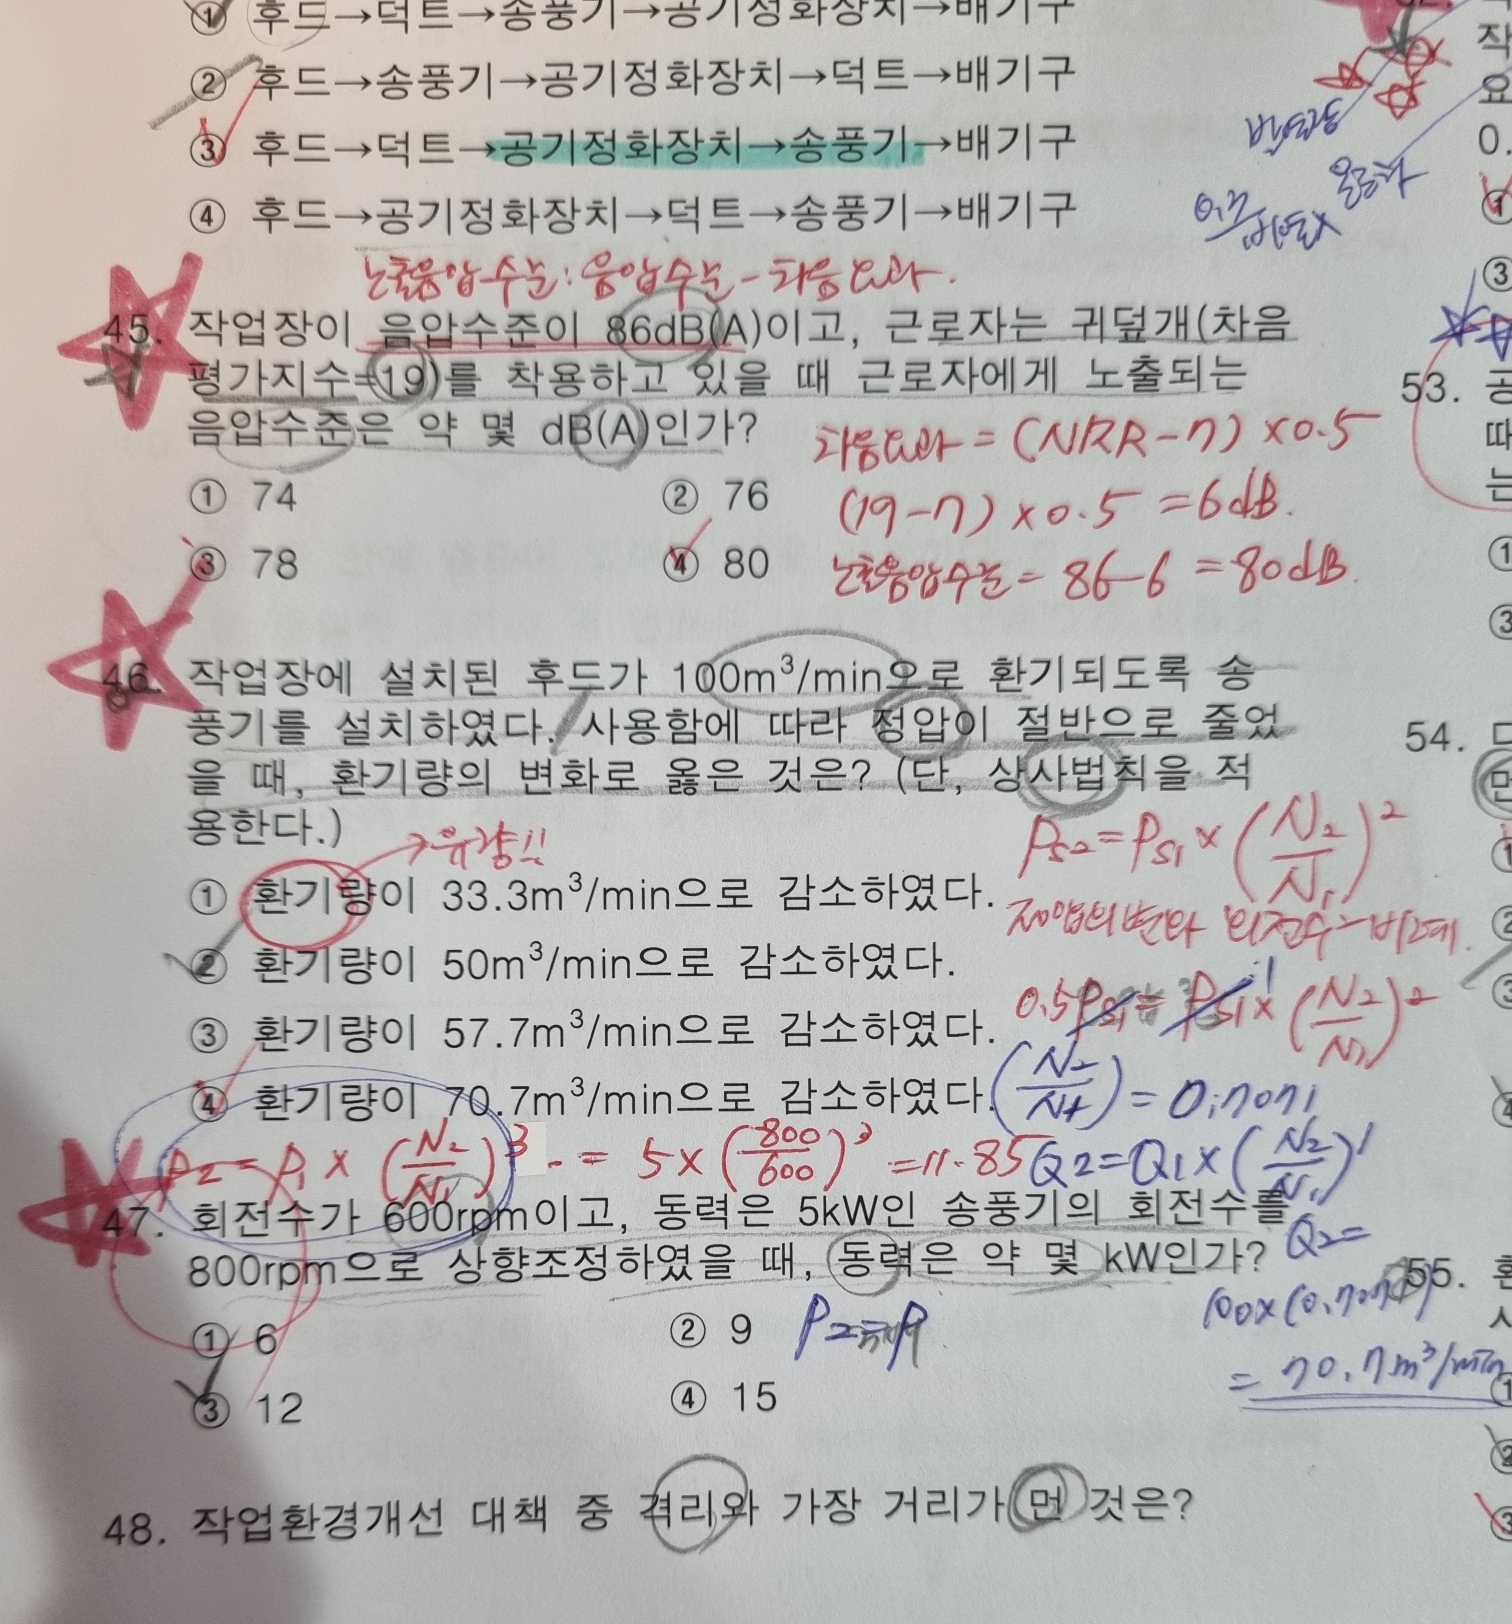 ① 후드→덕트→송풍기→공기정화장치→배기구
② 후드→송풍기→공기정화장치→덕트→배기구
③ 후드→덕트→공기정화장치→송풍기→배기구
④ 후드→공기정화장치→덕트→송풍기→배기구
노출음압수준: 음압수준-차음효과.
45. 작업장이 음압수준이 86dB(A)이고, 근로자는 귀덮개(차음
평가지수=19)를 착용하고 있을 때 근로자에게 노출되는
음압수준은 약 몇 dB(A)인가?
차음효과 = (NRR-7) ×0.5
① 74 ② 76
(19-7)×0.5 =6dB.
③ 78 ④ 80
노출음압수준= 86-6 =80dB.
46. 작업장에 설치된 후드가 100m³/min으로 환기되도록 송
풍기를 설치하였다. 사용함에 따라 정압이 절반으로 줄었
을 때, 환기량의 변화로 옳은 것은? (단, 상사법칙을 적
용한다.)
→유량!!
Ps2=Ps1×(N2/N1)²
① 환기량이 33.3m³/min으로 감소하였다.
② 환기량이 50m³/min으로 감소하였다.
0.5Ps1=Ps1×(N2/N1)²
③ 환기량이 57.7m³/min으로 감소하였다.
④ 환기량이 70.7m³/min으로 감소하였다.
(N2/N1)=0.7071
P2=P1×(N2/N1)³ = 5×(800/600)³ =11.85
Q2=Q1×(N2/N1)¹
47. 회전수가 600rpm이고, 동력은 5kW인 송풍기의 회전수를
800rpm으로 상향조정하였을 때, 동력은 약 몇 kW인가?
Q2=
100×(0.7071)
= 70.7m³/min
① 6 ② 9
P2=P1
③ 12 ④ 15
48. 작업환경개선 대책 중 격리와 가장 거리가 먼 것은?
작
요
0.
①
③
53. 공
때
는
①
③
54.
먼
①
②
③
④
55.
①
②
③